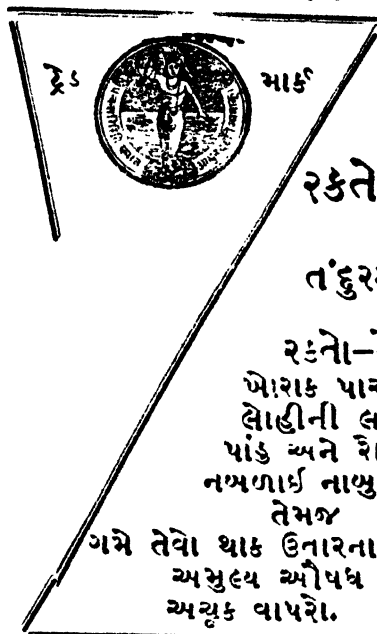 ટ્રેડ માર્ક
રક્તે
તંદુર
રક્તો-
ખોરાક પાચ
લોહીની લ
પાંડુ અને રો
નબળાઈ નાબુ
તેમજ
ગમે તેવો થાક ઉતારના
અમુલ્ય ઔષધ
અચૂક વાપરો.